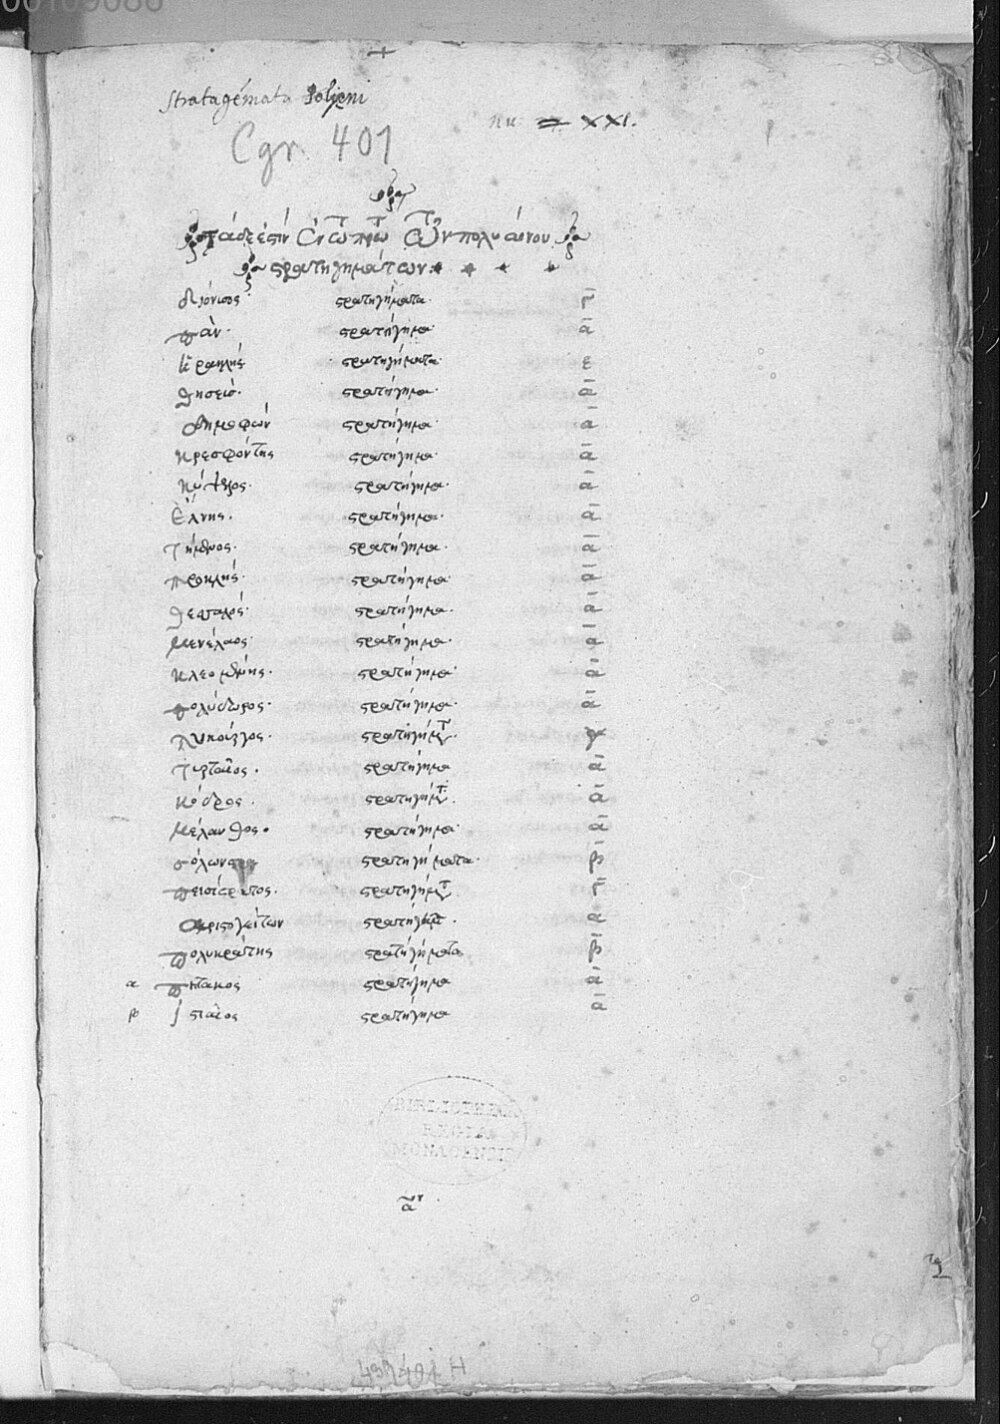 00109086
+
Stratagemata Polyeni
XXI.
Cgr. 401
τάδε ἐςὶν ἐν τῶ πρώτω τῶν πολυαίνου
ςρατηγημάτων
διόνυσος· ςρατηγήματα· γ
πὰν· ςρατήγημα· α
ἡρακλῆς ςρατηγήματα· ε
θησεύς· ςρατήγημα· α
δημοφῶν ςρατήγημα· α
κρεσφόντης ςρατήγημα· α
κύψελος· ςρατήγημα· α
ἕλνης· ςρατήγημα· α
τήμενος· ςρατήγημα· α
προκλῆς· ςρατήγημα· α
θεσσαλός· ςρατήγημα· α
μενέλαος· ςρατήγημα· α
κλεομένης· ςρατήγημα· α
πολύδωρος· ςρατήγημα· α
λυκοῦργος· ςρατηγήματ γ
τυρταῖος· ςρατήγημα α
κόδρος· ςρατήγημ α
μέλανθος· ςρατήγημα· α
σόλων ςρατηγήματα· β
πεισίςρατος· ςρατηγήματ γ
ἀριςογείτων ςρατήγημα· α
πολυκράτης ςρατηγήματα β
α πιττακος ςρατήγημα α
β ςρατήγημα α
BIBLIOTHECA REGIA MONACENSIS
αον